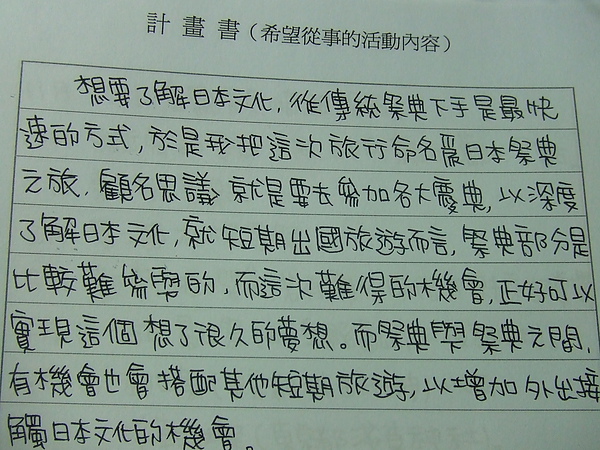 計畫書(希望從事的活動內容)
想要了解日本文化,從傳統祭典下手是最快
速的方式,於是我把這次旅行命名爲日本祭典
之旅,顧名思議就是要去參加各大慶典,以深度
了解日本文化,就短期出國旅遊而言,祭典部分是
比較難參與的,而這次難得的機會,正好可以
實現這個想了很久的夢想。而祭典與祭典之間,
有機會也會搭配其他短期旅遊,以增加外出接
觸日本文化的機會。